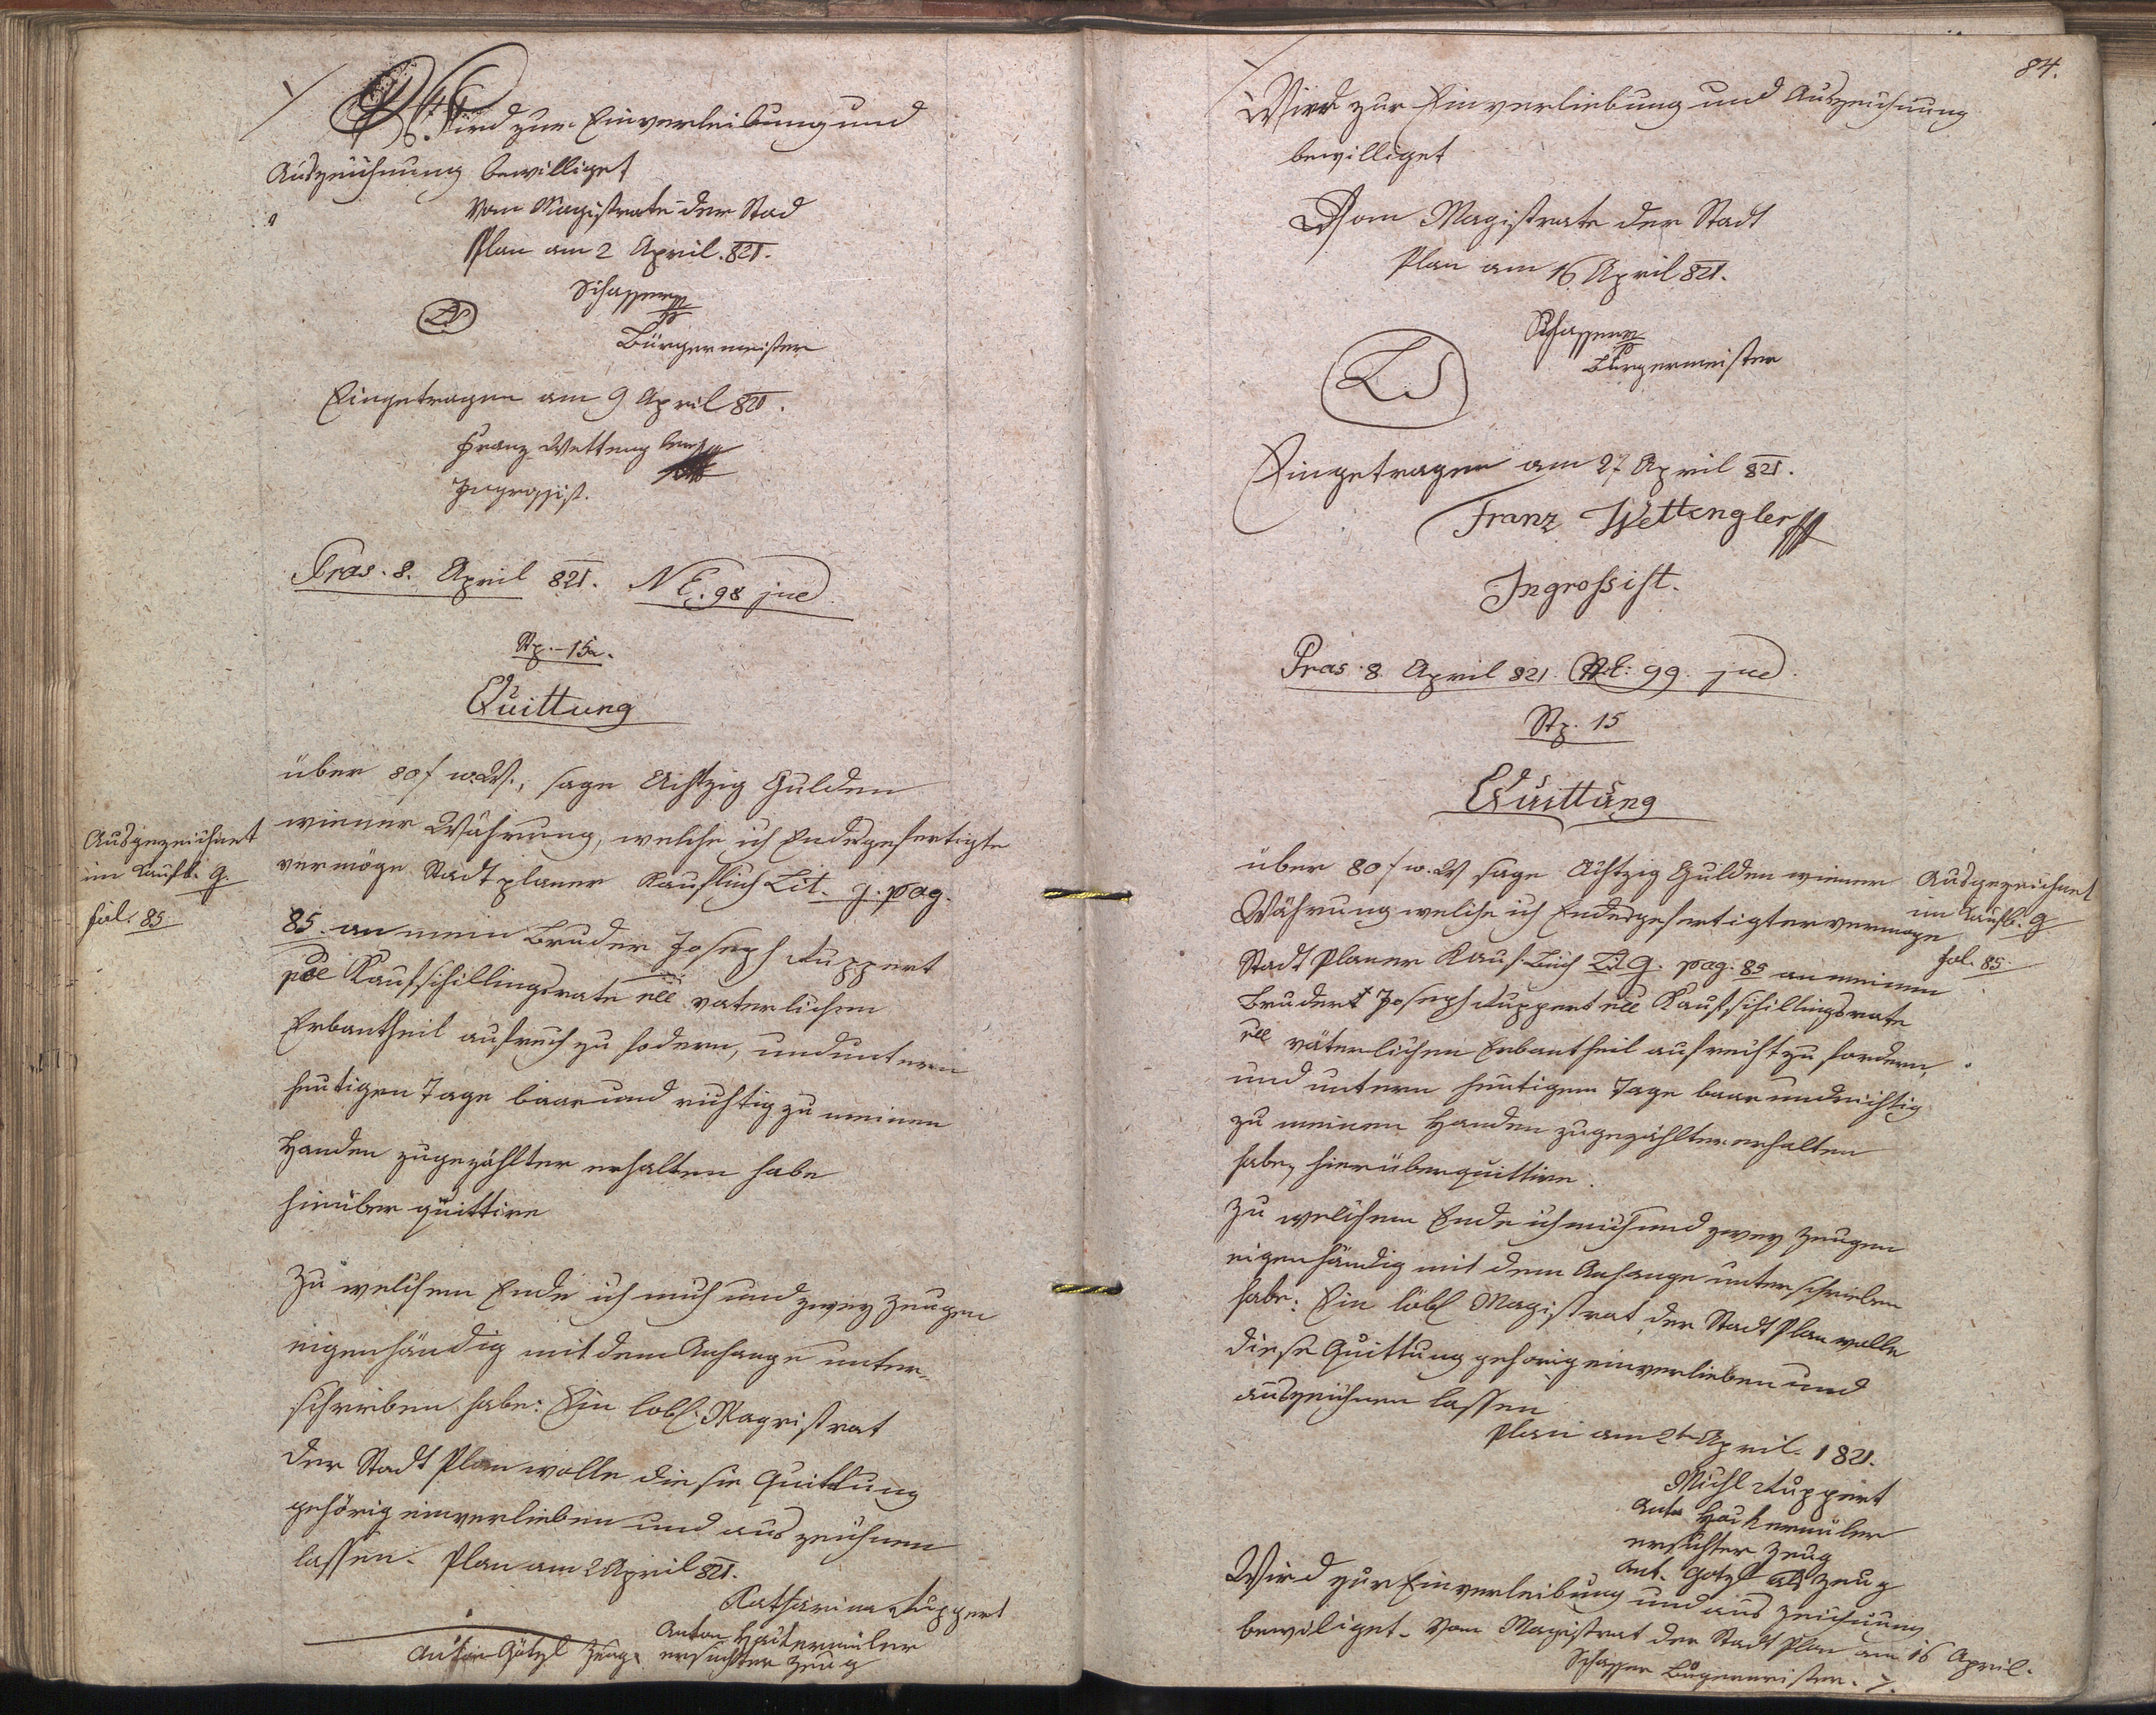 Wird zur Einverleibung und
Auszeichnung bewilliget
Vom Magistrate der Stad
Plan am 2 April 821.
LS
Bürgermeister
Eingetragen am 9 April 821.
Franz Wetteng
Ingrossist.
Pras. 8. April 821. NE. 98 jud
Stp. 15x.
Quittung
über 80 f w.W., sage Achtzig Gulden
wiener Währung, welche ich Endesgefertigte
vermöge Stadt planer Kaufbuch Lit. g. pag.
85. an mein Bruder Joseph Ruppert
Kaufschillingsrate vaterlichen
Erbantheil aufrech zu fodern, und untern
heutigen Tage baar und richtig zu meinen
Handen zugezählter erhalten habe
hierüber quittire
Ausgezeichnet
im Kaufb. G.
fol. 85
Zu welchem Ende ich mich und zwey Zeugen
eigenhändig mit dem Anhange unter-
schrieben habe: Ein lobl. Magistrat
der Stadt Plan wolle diesie Quittung
gehörig einverlieben und aus zeichnen
lassen. Plan am 2 April 821.
Katharina Ruppert
Anton
ersuchter Zeug
Anton Götzl Zeuge
84.
Wird zur Einverliebung und Auszeichnung
bewilliget
Vom Magistrate der Stadt
Plan am 16 April 821.
LS
Bürgermeister
Eingetragen am 27 April 821.
Franz Wettengler
Ingrossist.
Pras. 8. April 821. NE: 99. jud.
Stp. 15
Quittung
über 80 f w. W sage Achtzig Gulden wiener
Währung welche ich Endesgefertigter vermoge
Stadt Planer Kauf Buch Lit G. pag. 85 an meinen
Bruder Joseph Ruppert Kaufschillingsrate
väterlichen Erbantheil aufrecht zu fordern,
und untern heutigen Tage baar und richtig
zu meinen Handen zugezählter erhalten
habe, hierüber quittire.
Ausgezeichnet
im Kaufb. G
fol. 85.
Zu welchem Ende ich mich und zwey Zeugen
eigenhändig mit dem Anhange unterschrieben
habe: Ein löbl Magistrat der Stadt Plan wolle
diese Quittung gehorig einverlieben und
auszeichnen lassen
Plan am 2t April. 1821.
Michl Ruppert
Anto
ersuchter Zeug
Ant. Gotzl als Zeug
Wird zur Einverleibung und aus zeichnung
bewiliget. Vom Magistrat der Stadt Plan am 16 April.
Bürgermeister.